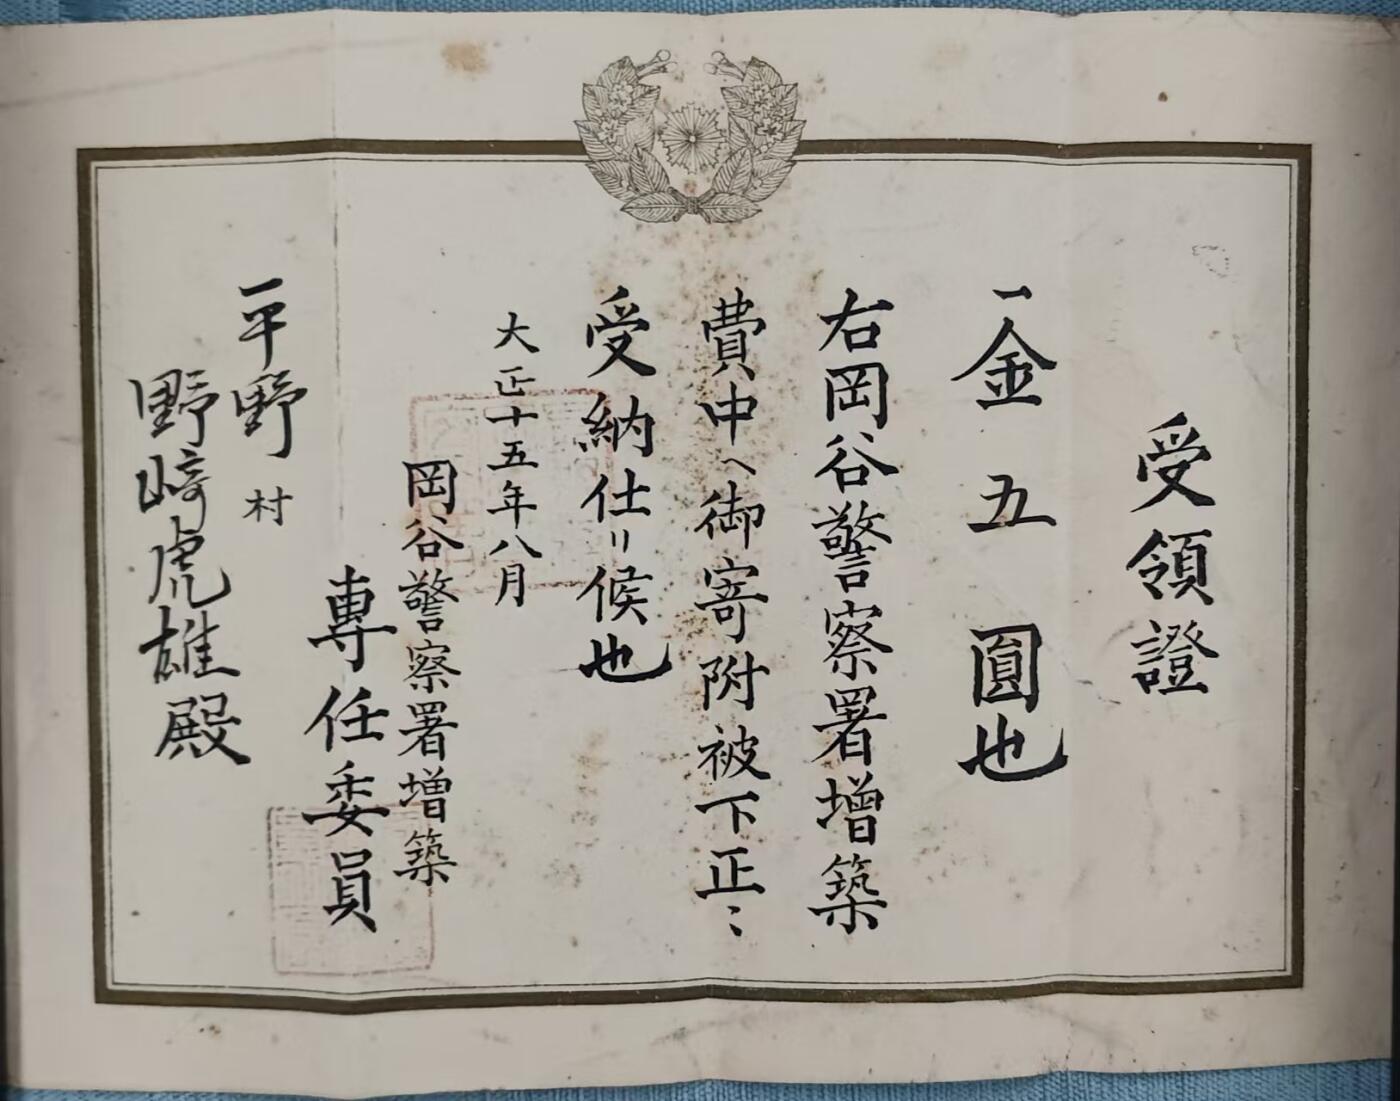 受領證
一金五圓也
右岡谷警察署增築
費中ヘ御寄附被下正ニ
受納仕リ候也
大正十五年八月
岡谷警察署增築
專任委員
平野村
野﨑虎雄殿